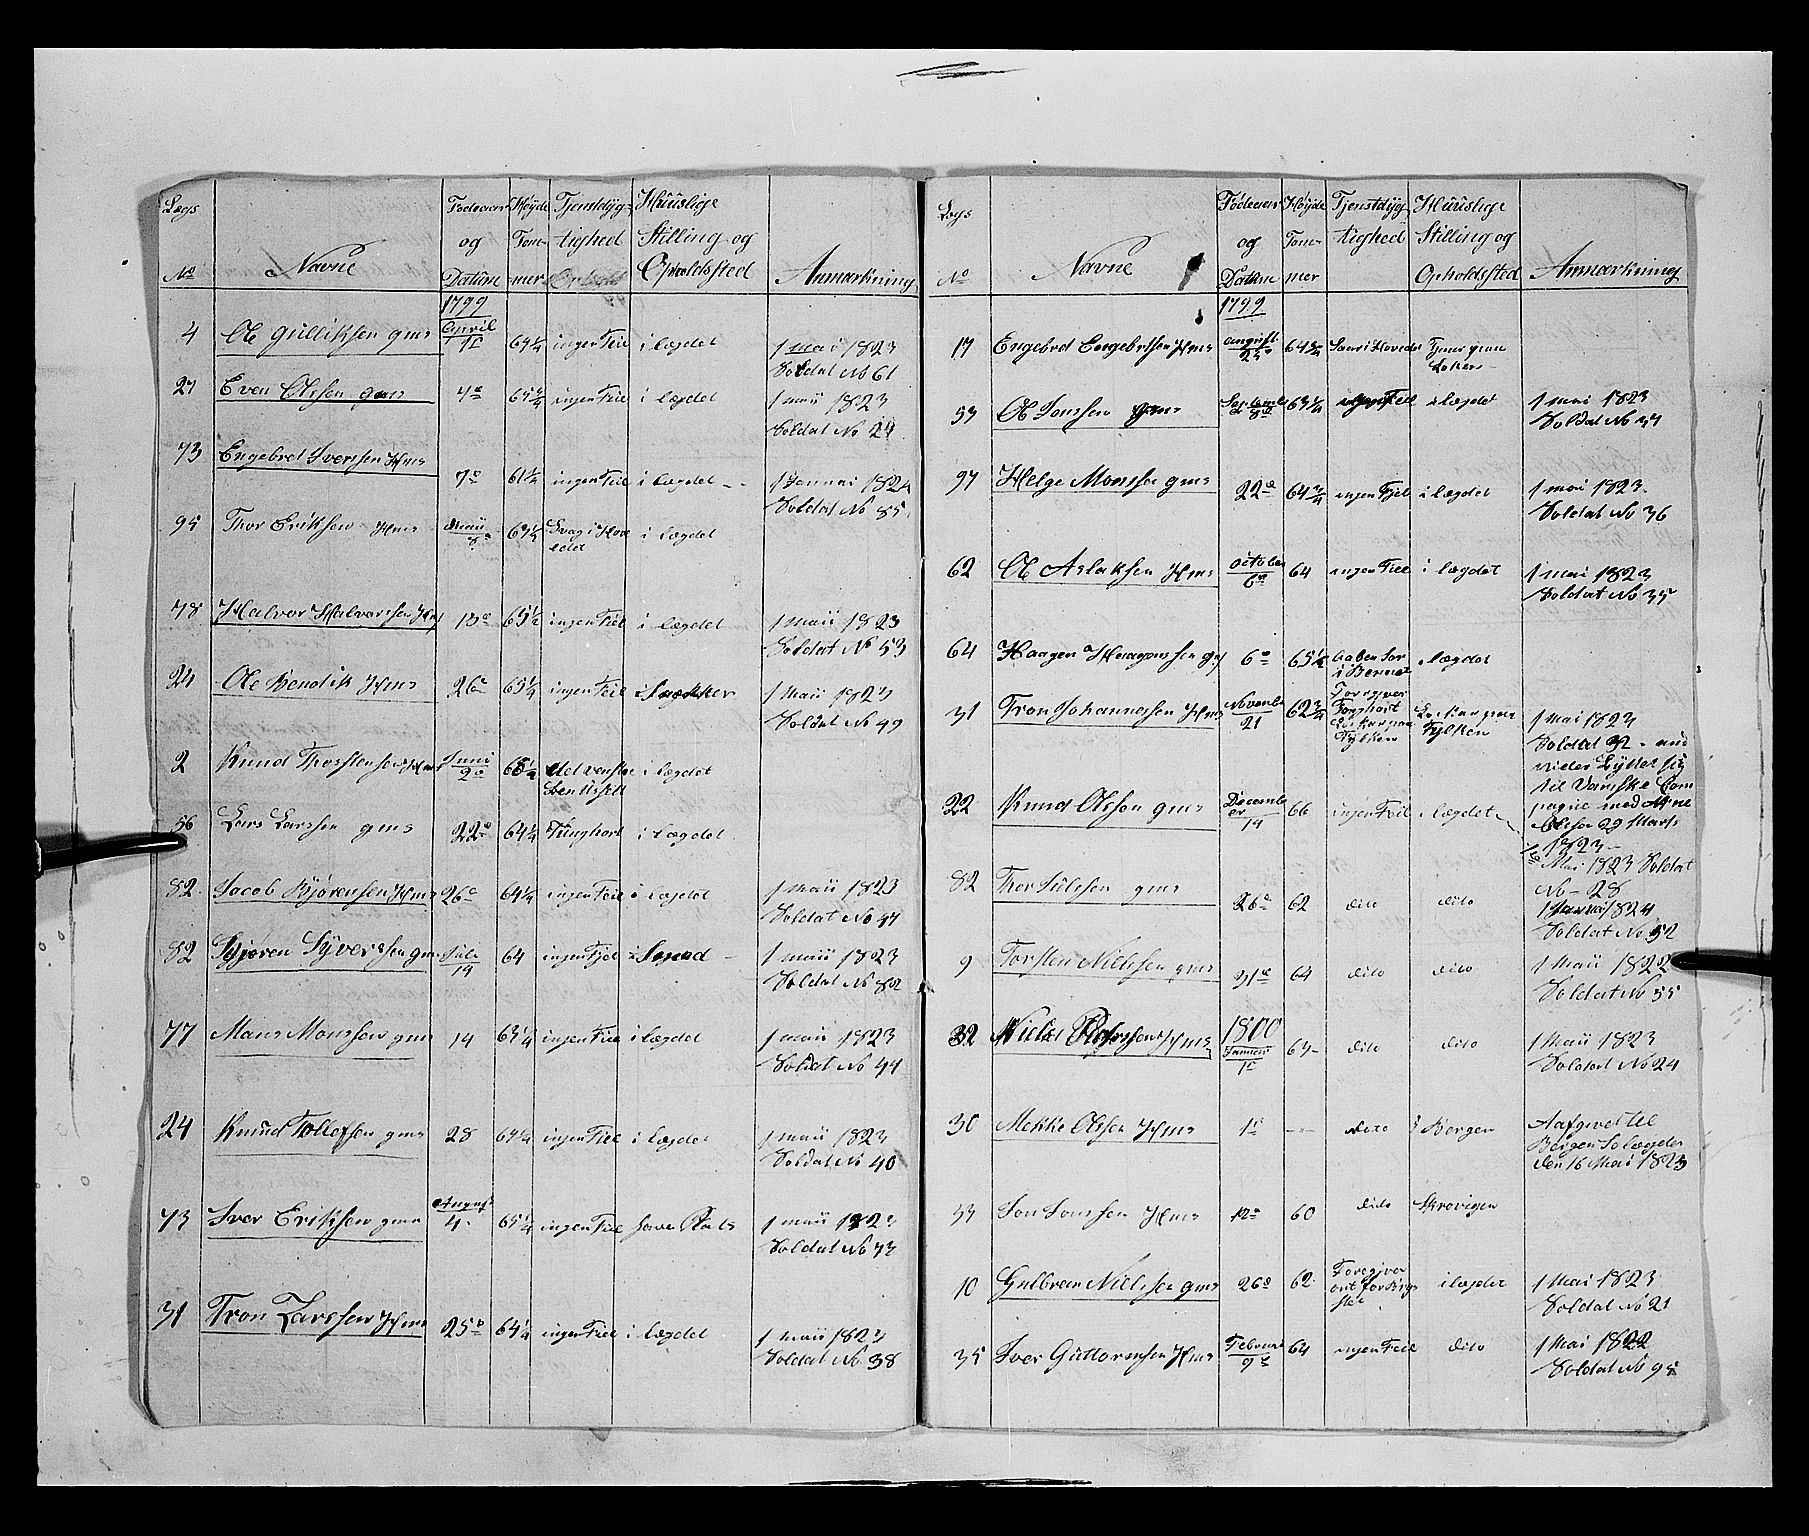 Lægs No | Navne | Fødeaar og Datum | Høyde Tommer | Tjenstdygtighed | Huuslige Stilling og Opholdssted | Anmærkning
1799
4 | Ole Gulliksen gms | April 1e | 64 1/4 | ingen Feil | i lægdet | 1 mai 1823 Soldat No 61
27 | Even Olssen gms | 4e | 65 3/4 | ingen Feil | i lægdet | 1 maii 1823 Soldat No 24
73 | Engebret Iverssen Hms | 7e | 61 1/4 | ingen Feil | i lægdet | 1 Januai 1824 Soldat No 85
95 | Thor Eriksen Hms | Maii 8e | 63 1/4 | Svag i Hovedet | i lægdet
78 | Halvor Halvorssen Hms | 10e | 65 1/2 | ingen Feil | i lægdet | 1 maii 1823 Soldat No 53
24 | Ole Bendik Hms | 26e | 65 1/4 | ingen Feil | i Snækker | 1 Maii 1823 Soldat No 49
2 | Knud Thorstensen Hms | Juni 9e | 65 1/4 | i lægdet
56 | Lars Larssen gms | 22e | 64 1/4 | Tunghørt | i lægdet
82 | Jacob Bjørensen Hms | 26e | 64 1/4 | ingen Feil | i lægdet | 1 maii 1823 Soldat No 47
82 | Bjøren Syverssen gms | Juli 14 | 64 | ingen Fejl | i Smed | 1 maii 1823 Soldat No 82
77 | Mans Monssen gms | 14 | 63 1/4 | ingen Feil | i lægdet | 1 maii 1823 Soldat No 44
24 | Knud Tollefsen gms | 28 | 64 1/4 | ingen Feil | i lægdet | 1 maii 1823 Soldat No 40
73 | Iver Eriksen gms | August 4 | 65 1/4 | ingen Feil | have Plads | 1 maii 1823 Soldat No 73
31 | Tron Larssen Hms | 25e | 64 1/4 | ingen Feil | i lægdet | 1 maii 1823 Soldat No 38
Logs No | Navne | Fødeaar og Datum | Høyde Tommer | Tjenstdygtighed | Huuslige Stilling og Opholdsted | Anmærkning
1799
17 | Engebret Engebretsen Hms | August 25e | 64 3/4 | Saar i Hovedet | Tjener paa Loken
53 | Ole Jonssen gms | Septemb 8e | 63 1/4 | ingen Feil | i lægdet | 1 mai 1823 Soldat No 37
97 | Helge Monssen gms | 22e | 64 3/4 | ingen Fjel | i lægdet | 1 mai 1823 Soldat No 36
62 | Ole Aslaksen Hms | October 6e | 64 | ingen Feil | i lægdet | 1 mai 1823 Soldat No 35
64 | Haagen Haagenssen gms | 6e | 65 1/4 | Aaben Sar i Benet | i lægdet
31 | Tron Johannessen Hms | Novemb 21 | 62 3/4 | Foregiver Tunghørt | Lo Kar paa Fylken | 1 mai 1823 Soldat 32 til Vanske Compagnie med 29 Marts 1823
22 | Knud Olssen gms | December 14 | 66 | ingen Feil | i lægdet | 1te Mai 1823 Soldat No 28
82 | Thor Juelsen gms | 26e | 62 | dito | dito | 1 Januai 1824 Soldat No 52
9 | Torsten Nielssen gms | 31e | 64 | dito | dito | 1 Maii 1822 Soldat No 55
1800
32 | Niels Hms | Januari 1e | 63 | dito | dito | 1 Maii 1823 Soldat No 24
30 | Mekke Olssen Hms | 1e | dito | i Bergen | Aafgivet til Bergen Solægder den 16 Mai 1823
53 | Jon Jonssen Hms | 12e | 60 | dito | Skrovigen
10 | Gulbran Nielssen gms | 26e | 62 | Foregiver ont for Brystet | i lægdet | 1 Mai 1823 Soldat No 21
35 | Iver Guttormsen Hms | Februari 9e | 64 | ingen Feil | dito | 1 Mai 1822 Soldat No 95